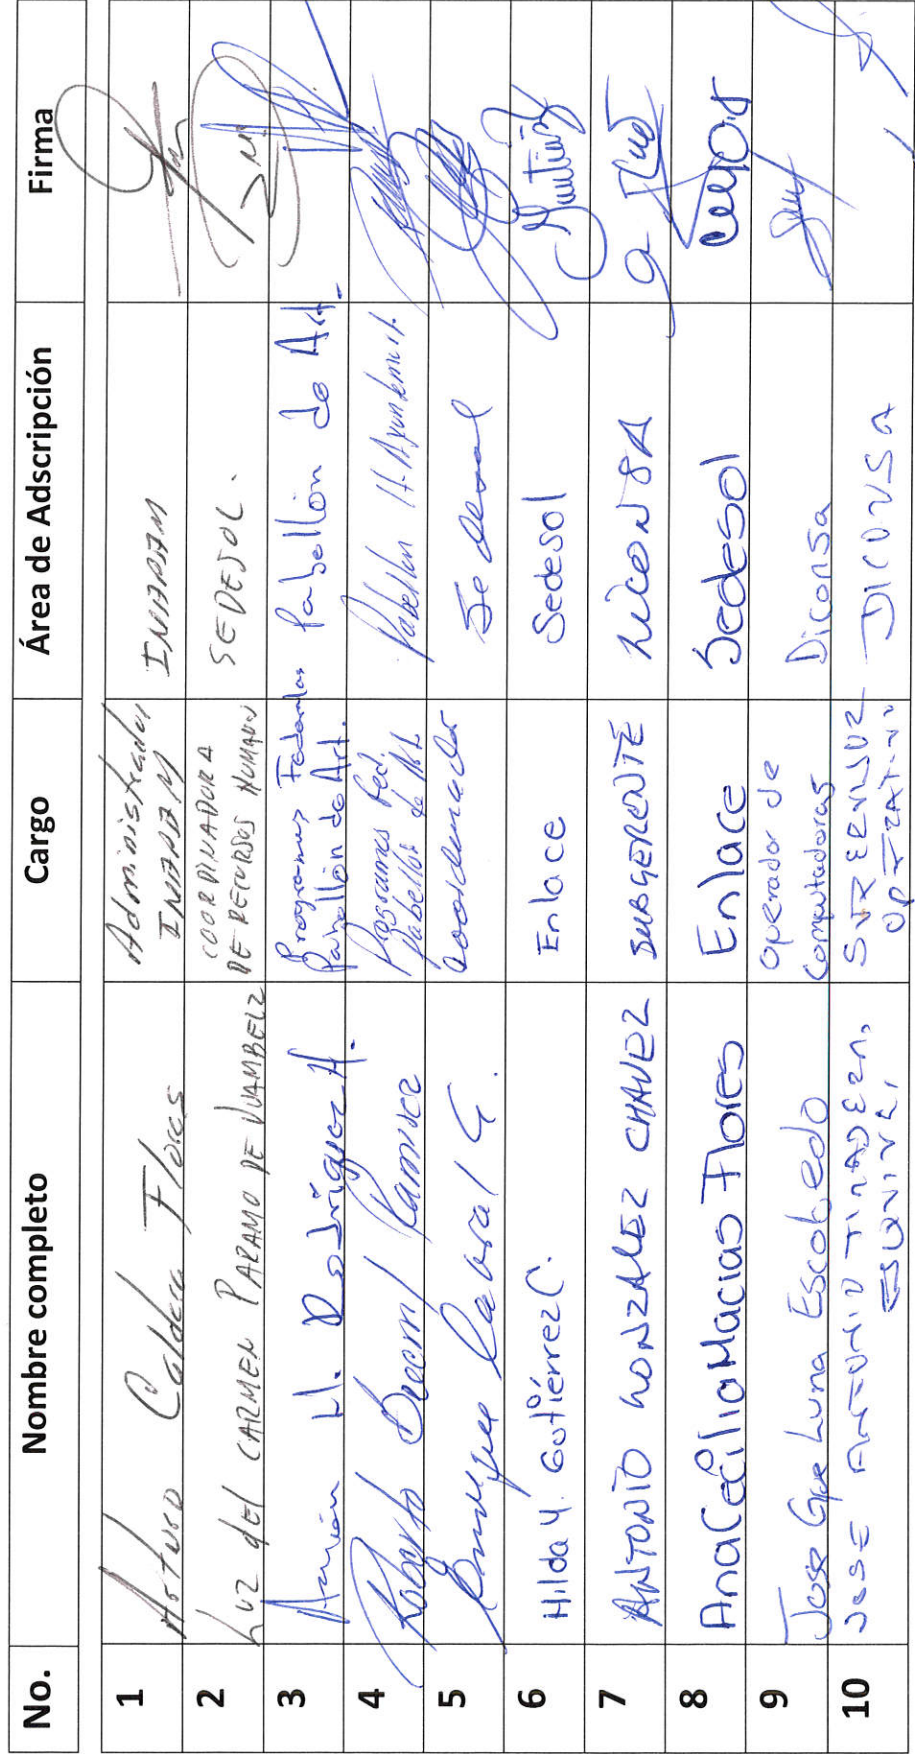 No. Nombre completo Cargo Área de Adscripción Firma
1 Arturo Caldera Flores Administrador INAPAM INAPAM
2 Luz del CARMEN PARAMO DE COORDINADORA DE RECURSOS HUMANOS SEDESOL.
3 H. Rodríguez A. Programas Federales Pabellón de Art. Pabellón de Art.
4 Roberto Ramirez Programas Fed. Pabellón de Art. Pabellon H. Ayuntamiento
5 Enrique Cabral G. Coordinador Sedesol
6 Hilda Y. Gutiérrez C. Enlace Sedesol Gutiérrez
7 ANTONIO GONZALEZ CHAVEZ SUBGERENTE LICONSA
8 Ana Cecilia Macias Flores Enlace Sedesol
9 Jose Gpe Luna Escobedo Operador de Computadoras Diconsa
10 JOSE ANTONIO ESQUIVEL SUPERVISOR OPERATIVO DICONSA